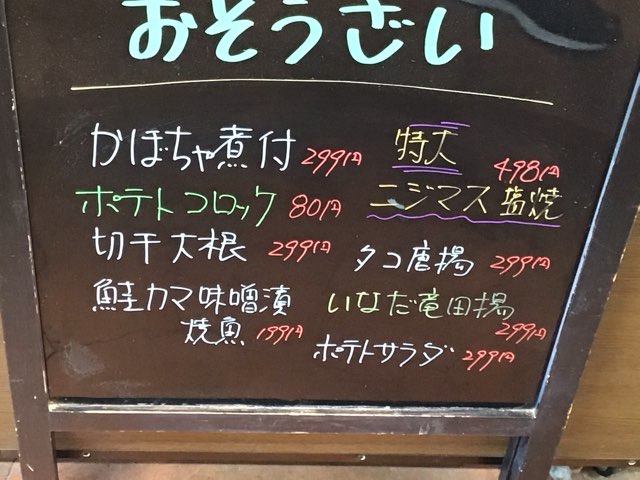 おそうざい
かぼちゃ煮付 299円
ポテトコロッケ 80円
切干大根 299円
鮭カマ味噌漬
焼魚 199円
特大
ニジマス 塩焼 498円
タコ唐揚 299円
いなだ竜田揚
299円
ポテトサラダ 299円